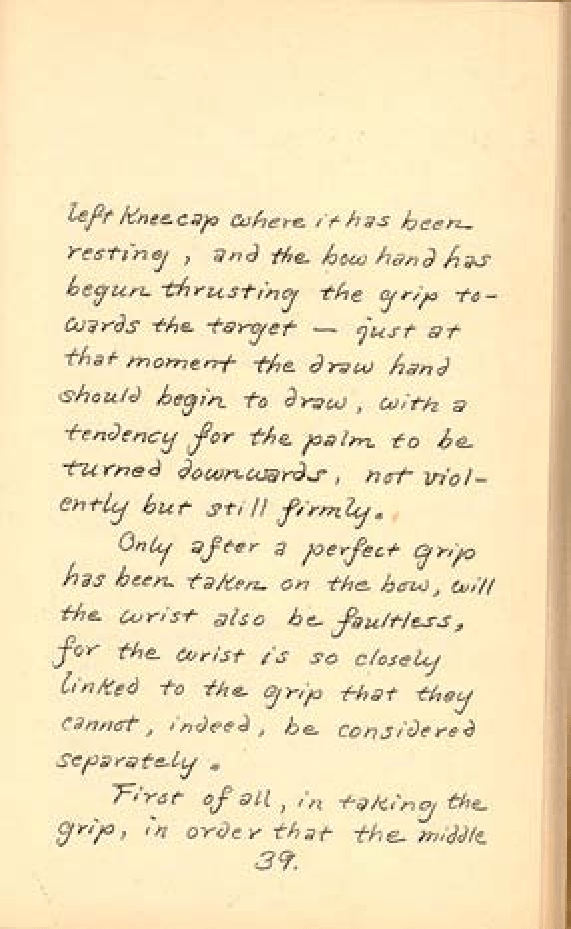 left Kneecap where it has been
resting, and the bow hand has
begun thrusting the grip to-
wards the target — just at
that moment the draw hand
should begin to draw, with a
tendency for the palm to be
turned downwards, not viol-
ently but still firmly.
Only after a perfect grip
has been taken on the bow, will
the wrist also be faultless,
for the wrist is so closely
linked to the grip that they
cannot, indeed, be considered
separately.
First of all, in taking the
grip, in order that the middle
39.